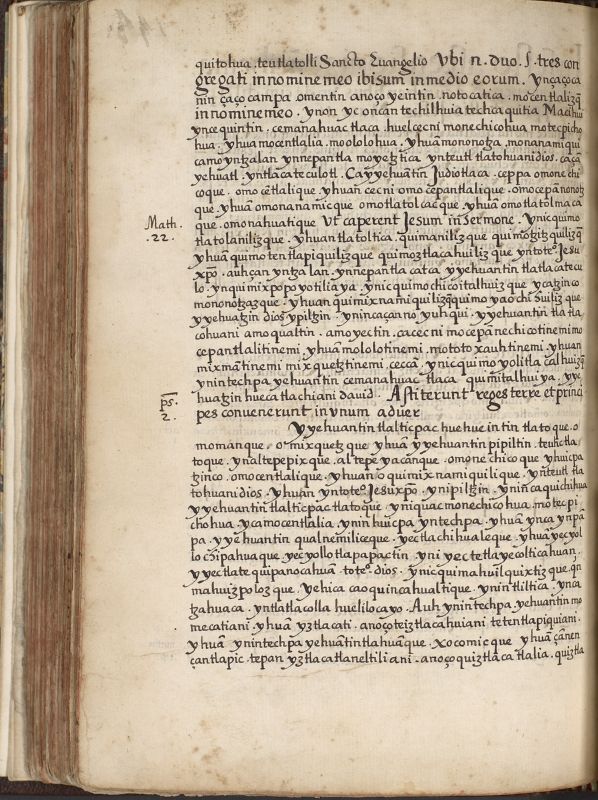 quitohua. teutlatolli Sancto Euangelio Vbi n. duo. ſ. tres con
gregati in nomine meo ibi sum in medio eorum. yn çaçoca
nin çaço campa. omentin anoço yeintin. notocatica. mocentlalizq̃
in nomine meo. ynon yc oncan techilhuia techcaquitia Macihui
ynce quintin. cemanahuac tlaca. huel cecni monechicohua motecpicho
hua. yhua mocentlalia. moololohua. yhuã mononotza. monanamiqui
camo yntzalan ynnepantla moyetztica ynteutl tlatohuani dios. ça çã
yehuatl. yntlacatecolotl. Ca yyehuãtin Judiotlaca. ceppa omonechi
coque. omocẽtlalique. yhuãn cecni omocepantlalique. omocepãnonotz
que. yhuã omonanamicque omotlatolcacque. yhuã omotlatolmaca
que. omonahuatique Vt caperent Jesum in Sermone. ynic quimo
Math.
.22.
tlatolanilizque. yhuan tlatoltica. quimanilizque quimotzitzquilizq̃
yhuã quimotentlapiquilizque quimoztlacahuilizque yntoteº. Jesu
xp̃o. auh çan yntzalan. ynnepantla catca yyehuantin tlatlacatecu
lo. ynquimixpopoyotiliaya. ynic quimochicoitalhuizque yçatzinco
mononotzazque. yhuan quimixnamiquilizq̃ quimoyaochihuilizque
yyehuatzin dios ypiltzin. ynin caçanno yuhqui. yyehuantin tlatla
cohuani amo qualtin. amo yectin. ca cecni mocepãnechicotinemi mo
cepantlalitinemi. yhuã mololotinemi. mototoxauhtinemi. yhuan
mixmãtinemi mixquetztinemi. ceccã. ynic quimoyolitlacalhuizq̃
ynintechpa yehuantin cemanahuac tlaca quimitalhuiya. yye
huatzin hueca tlachiani dauid. Aſtiterunt reges terre et princi
ps.
2.
pes conuenerunt in vnum aduer
Yyehuantin tlalticpac huehueintin tlatoque. o
momanque. omixquetzque yhuã yyehuantin pipiltin. teuhctla
toque. ynaltepepixque. altepeyacanque. omonechicoque yhuicpa
tzinco. omocentlalique. yhuan oquimixnamiquilique. ynteutl tla
tohuani dios. yhuan yntoteº. Jesuxp̃o. ynipiltzin. ynin ca quichihua
yyehuantin tlalticpac tlatoque. yniquac monechicohua. motecpi
chohua. yca mocentlalia. ynin huicpa yntechpa. yhuã ynca ynpã
pa. yyehuantin qualnemiliceque. yectlachihualeque. yhuã yecyol
lo chipahuaque. yecyollo tlapapactin. yni yectetlayecolticahuan.
yyectlatequipanocahuan toteº. dios. ynic quimahuilquixtizque. qn
mahuizpolozque. yehica caoquincahualtique. ynintliltica. ynca
tzahuaca. yntlatlacolla huelilocayo. Auh ynintechpa. yehuantin mo
mecatiani. yhuã yztlacati. anoço teiztlacahuiani tetentlapiquiani.
yhuã ynintechpa yehuãtin tlahuãque. xocomicque yhuã çãnen
çantlapic. tepan yztlacatlaneltiliani. anoço quiztlacatlalia. quiztla